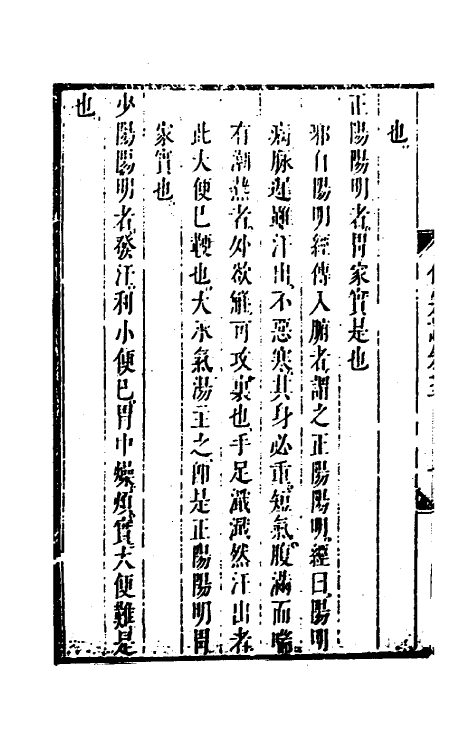 也
正陽陽明者胃家實是也
邪自陽明經傳入腑者謂之正陽陽明經曰陽明
病脉遲雖汗出不惡寒其身必重短氣腹滿而喘
有潮熱者外欲解可攻裏也手足濈濈然汗出者
此大便已鞕也大承氣湯主之卽是正陽陽明胃
家實也
少陽陽明者發汗利小便已胃中燥煩實大便難是
也